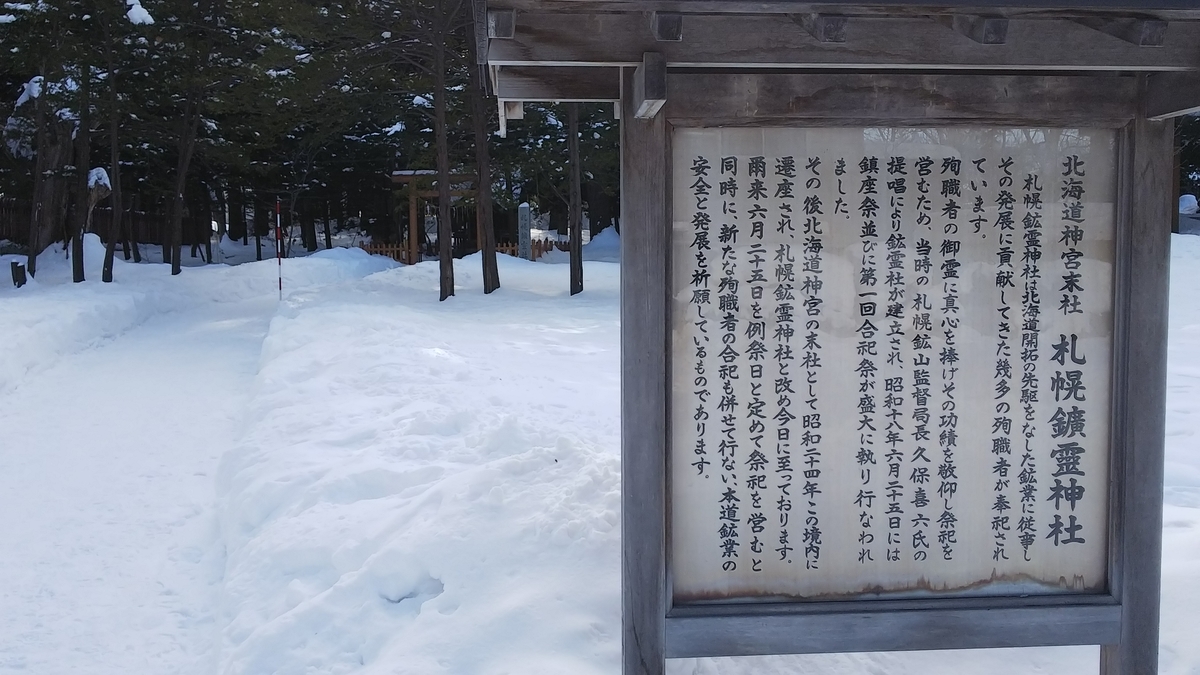 北海道神宮末社 札幌鑛霊神社
札幌鉱霊神社は北海道開拓の先駆をなした鉱業に従事し
その発展に貢献してきた幾多の殉職者が奉祀され
ています。
殉職者の御霊に真心を捧げその功績を敬仰し祭祀を
営むため、当時の札幌鉱山監督局長久保喜六氏の
提唱により鉱霊社が建立され、昭和十八年六月二十五日には
鎮座祭並びに第一回合祀祭が盛大に執り行なわれ
ました。
その後北海道神宮の末社として昭和二十四年この境内に
遷座され、札幌鉱霊神社と改め今日に至っております。
爾来六月二十五日を例祭日と定めて祭祀を営むと
同時に、新たな殉職者の合祀も併せて行ない、本道鉱業の
安全と発展を祈願しているものであります。